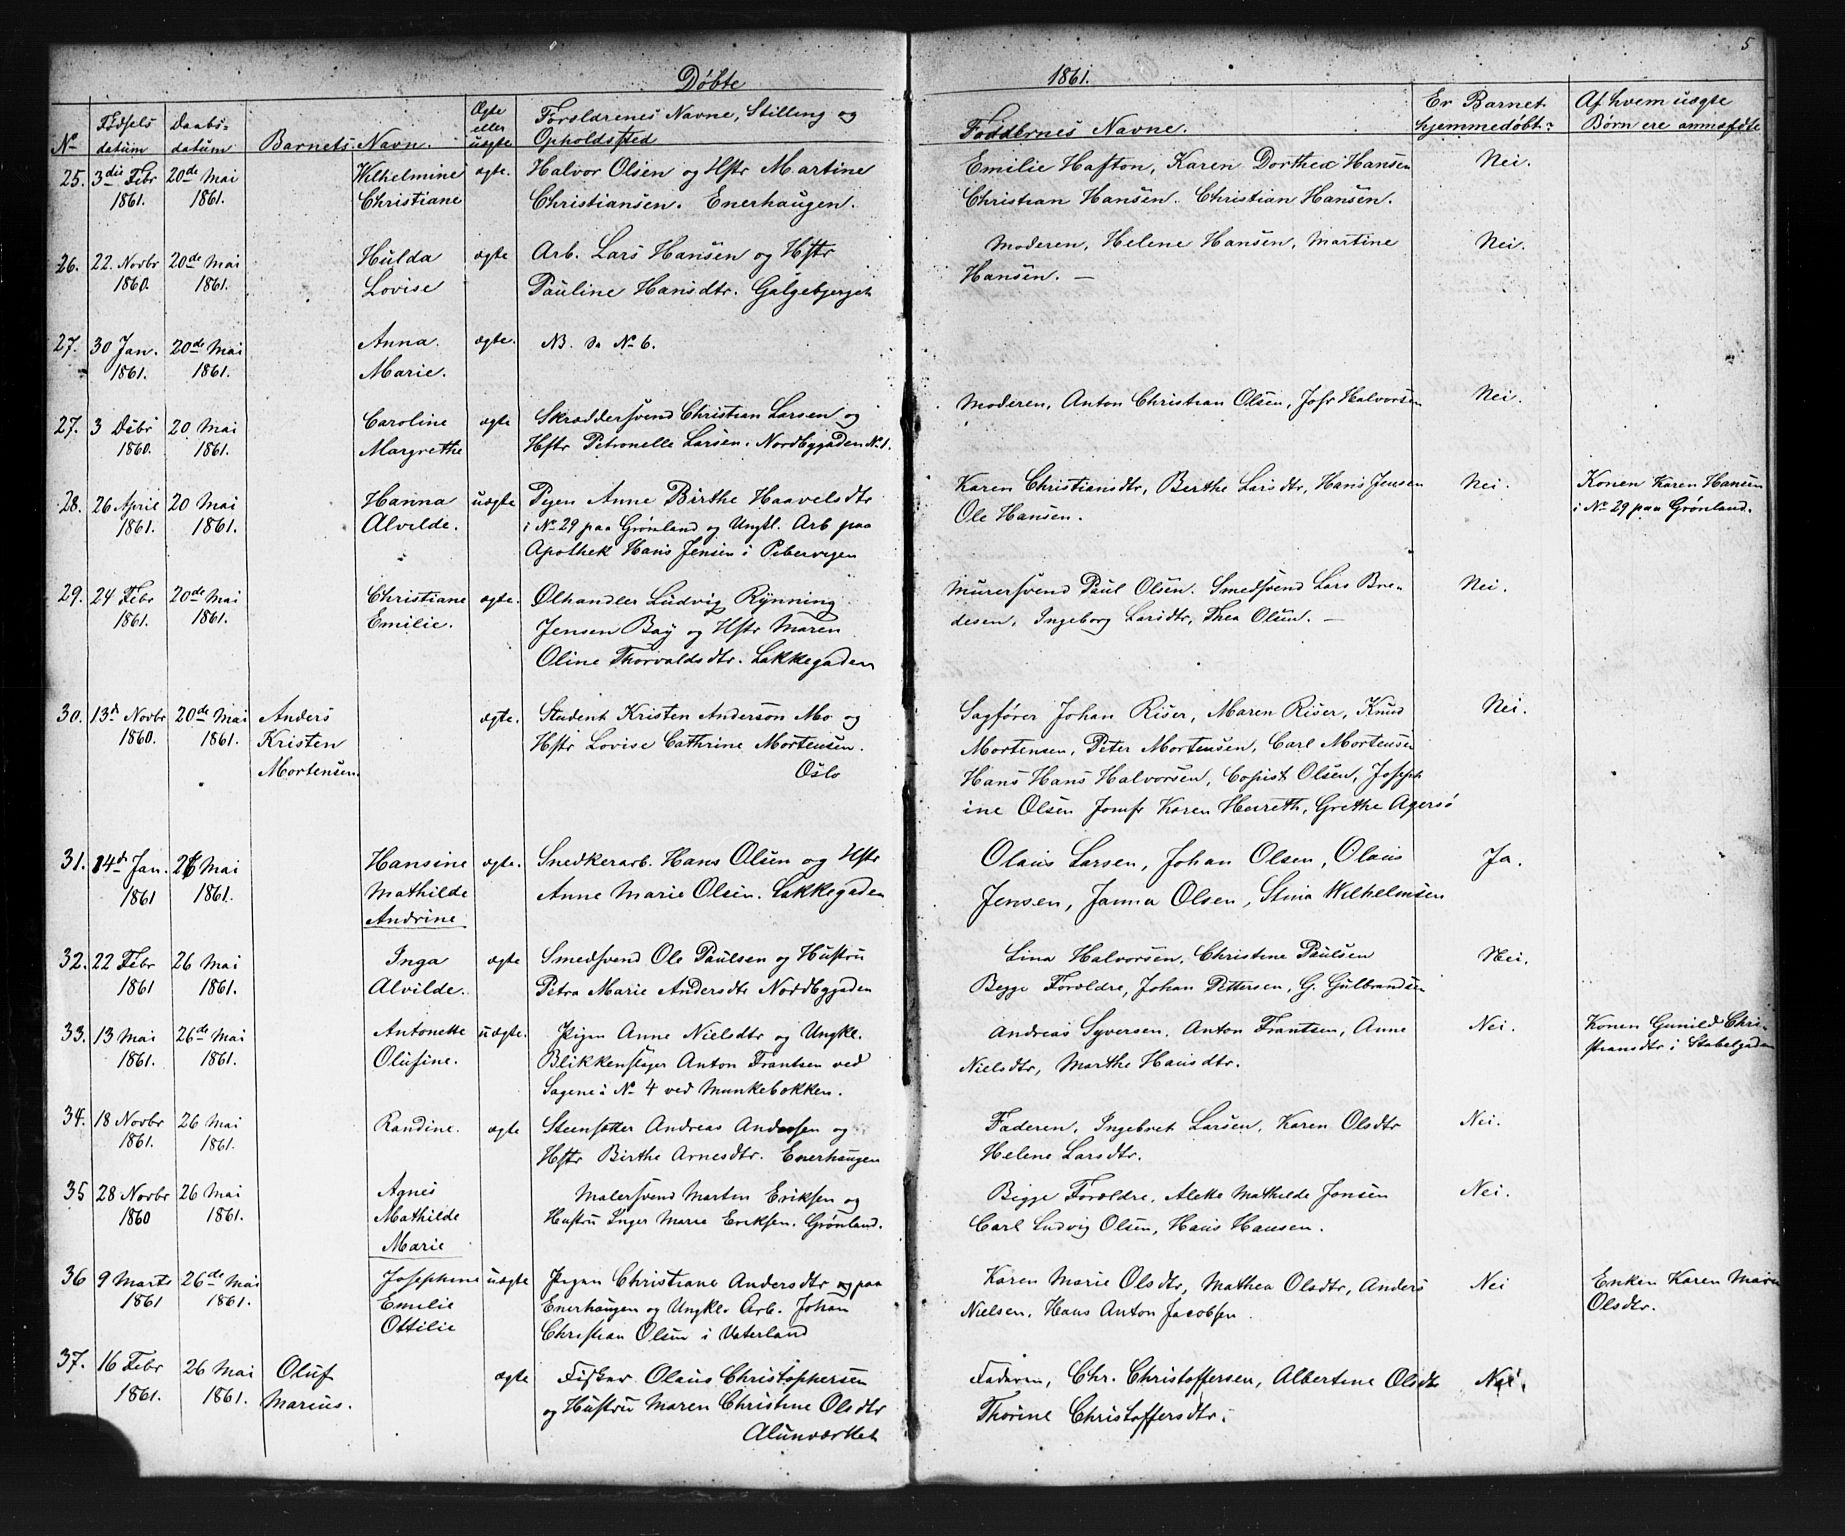 5
Døbte 1861.
No Fødsels datum Daabs- datum Barnets Navn. Ægte eller uægte Forældrenes Navne, Stilling og Opholdssted Faddernes Navne. Er Barnet hjemmedøbt? Af hvem uægte Børn ere anmeldte
25. 3die Febr 20de Mai Wilhelmine ægte. Halvor Olsen og Hstr Martine Emilie Hafton, Karen Dorthea Hansen Nei.
1861. 1861. Christiane Christiansen. Enerhaugen. Christian Hansen. Christian Hansen.
26. 22. Novbr 20de Mai Hulda ægte Arb. Lars Hansen og Hstr Moderen, Helene Hansen, Martine Nei.
1860. 1861. Lovise Pauline Hansdtr. Galgebjerget Hansen. —
27. 30 Jan. 20de Mai Anna ægte. NB. se No 6.
1861. 1861. Marie.
27. 3 Debr 20 Mai Caroline ægte Skræddersvend Christian Larsen og Moderen, Anton Christian Olsen, Jofr Halvorsen Nei.
1860. 1861. Margrethe Hstr Petronelle Larsen. Nordbygaden No 1.
28. 26 April 20 Mai Hanna uægte Pigen Anne Birthe Haavelsdtr Karen Christiansdtr, Berthe Larsdtr, Hans Jensen Nei. Konen Karen Hansen
1861. 1861. Alvilde. i No 29 paa Grønland og Ungkl. Arb paa Ole Hansen. i No 29 paa Grønland.
Apothek Hans Jensen i Pebervigen
29. 24 Febr 20de Mai Christiane ægte. Ølhandler Ludvig Rynning Murersvend Paul Olsen. Smedsvend Lars Bre- Nei.
1861. 1861. Emilie. Jensen Bay og Hstr Maren desen, Ingeborg Larsdtr, Thea Olsen. —
Oline Thorvaldsdtr. Lakkegaden
30. 13d Novbr 20de Mai Anders ægte. Student Kristen Anderson Mo og Sagfører Johan Riser, Maren Riser, Knud Nei.
1860. 1861. Kristen Hstr Lovise Cathrine Mortensen. Mortensen, Peter Mortensen, Carl Mortensen
Mortensen. Oslo Hans Hans Halvorsen, Copist Olsen, Joseph
ine Olsen Jomfr Karen Herreth, Grethe Agersø
31. 14d Jan. 26 Mai Hansine ægte. Snedkerarb. Hans Olsen og Hstr Olaus Larsen, Johan Olsen, Olaus Ja.
1861 1861. Mathilde Anne Marie Olsen. Lakkegaden Jensen, Janna Olsen, Stina Wilhelmsen
Andrine
32. 22 Febr 26 Mai Inga ægte Smedsvend Ole Paulsen og Hustru Lina Halvorsen, Christine Paulsen Nei.
1861 1861. Alvilde. Petra Marie Andersdtr Nordbygaden Begge Forældre, Johan Pettersen, G. Gulbrandsen
33. 13 Mai 26de Mai Antonette uægte. Pigen Anne Nielsdtr og Ungkl. Andreas Syversen, Anton Frantsen, Anne Nei. Konen Gunild Chri-
1861. 1861. Olufine. Blikkenslager Anton Frantsen ved Nielsdtr, Marthe Hansdtr. stiansdtr i Stabelgaden
Sagene i No 4 ved Munkebakken.
34. 18 Novbr 26 Mai Randine. ægte Steensætter Andreas Andersen og Faderen, Ingebret Larsen, Karen Olsdtr Nei.
1861. 1861. Hstr Birthe Arnesdtr. Enerhaugen Helene Larsdtr.
35 28 Novbr 26 Mai Agnes Malersvend Martin Eriksen og Begge Forældre, Alette Mathilde Jonsen Nei.
1860 1861. Mathilde Hustru Inger Marie Eriksen. Grønland. Carl Ludvig Olsen, Hans Hansen.
Marie
36 9 Marts 26de Mai Josephine uægte Pigen Christiane Andersdtr og paa Karen Marie Olsdtr, Mathea Olsdtr, Anders Nei Enken Karen Marie
1861 1861. Emilie Enerhaugen og Ungkl. Arb. Johan Nielsen, Hans Anton Jacobsen Olsdtr.
Ottilie Christian Olsen i Vaterland
37. 16 Febr 26 Mai Oluf ægte Fisker Olaus Christophersen Faderen, Chr. Christoffersen, Albertine Olsdtr Nei.
1861. 1861. Marius. og Hustru Maren Christine Olsdtr Thorine Christoffersdtr.
Alunværket